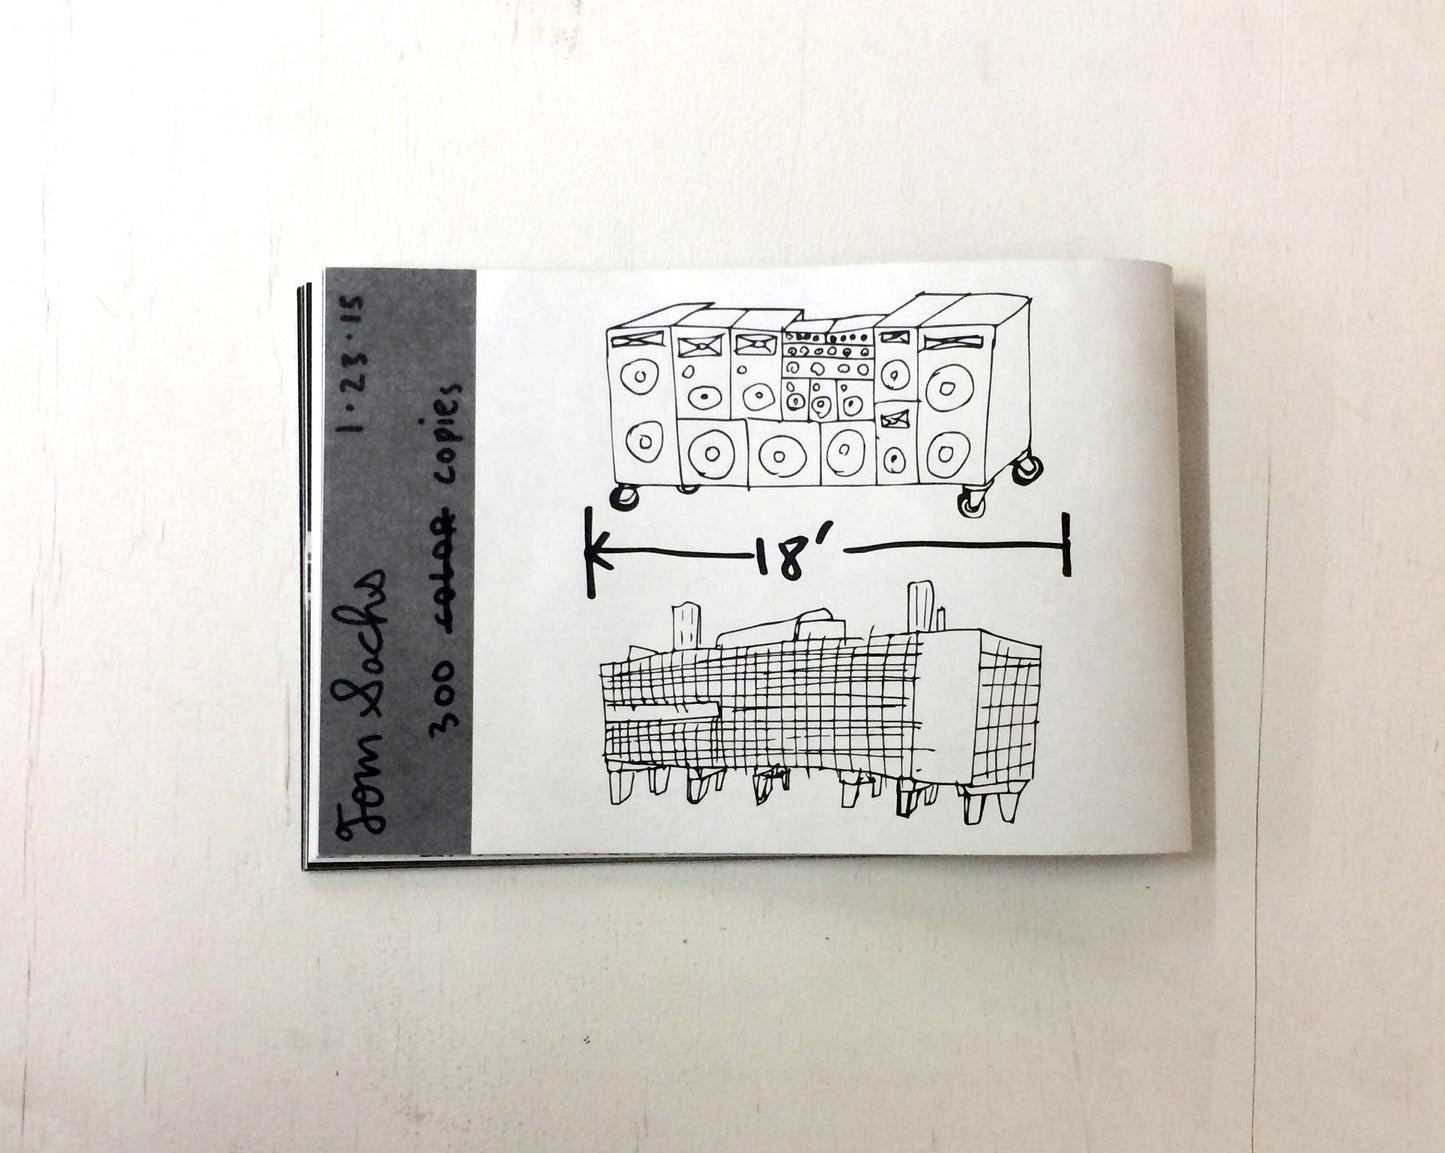 Tom Sachs 1·23·15
300 color copies
18'